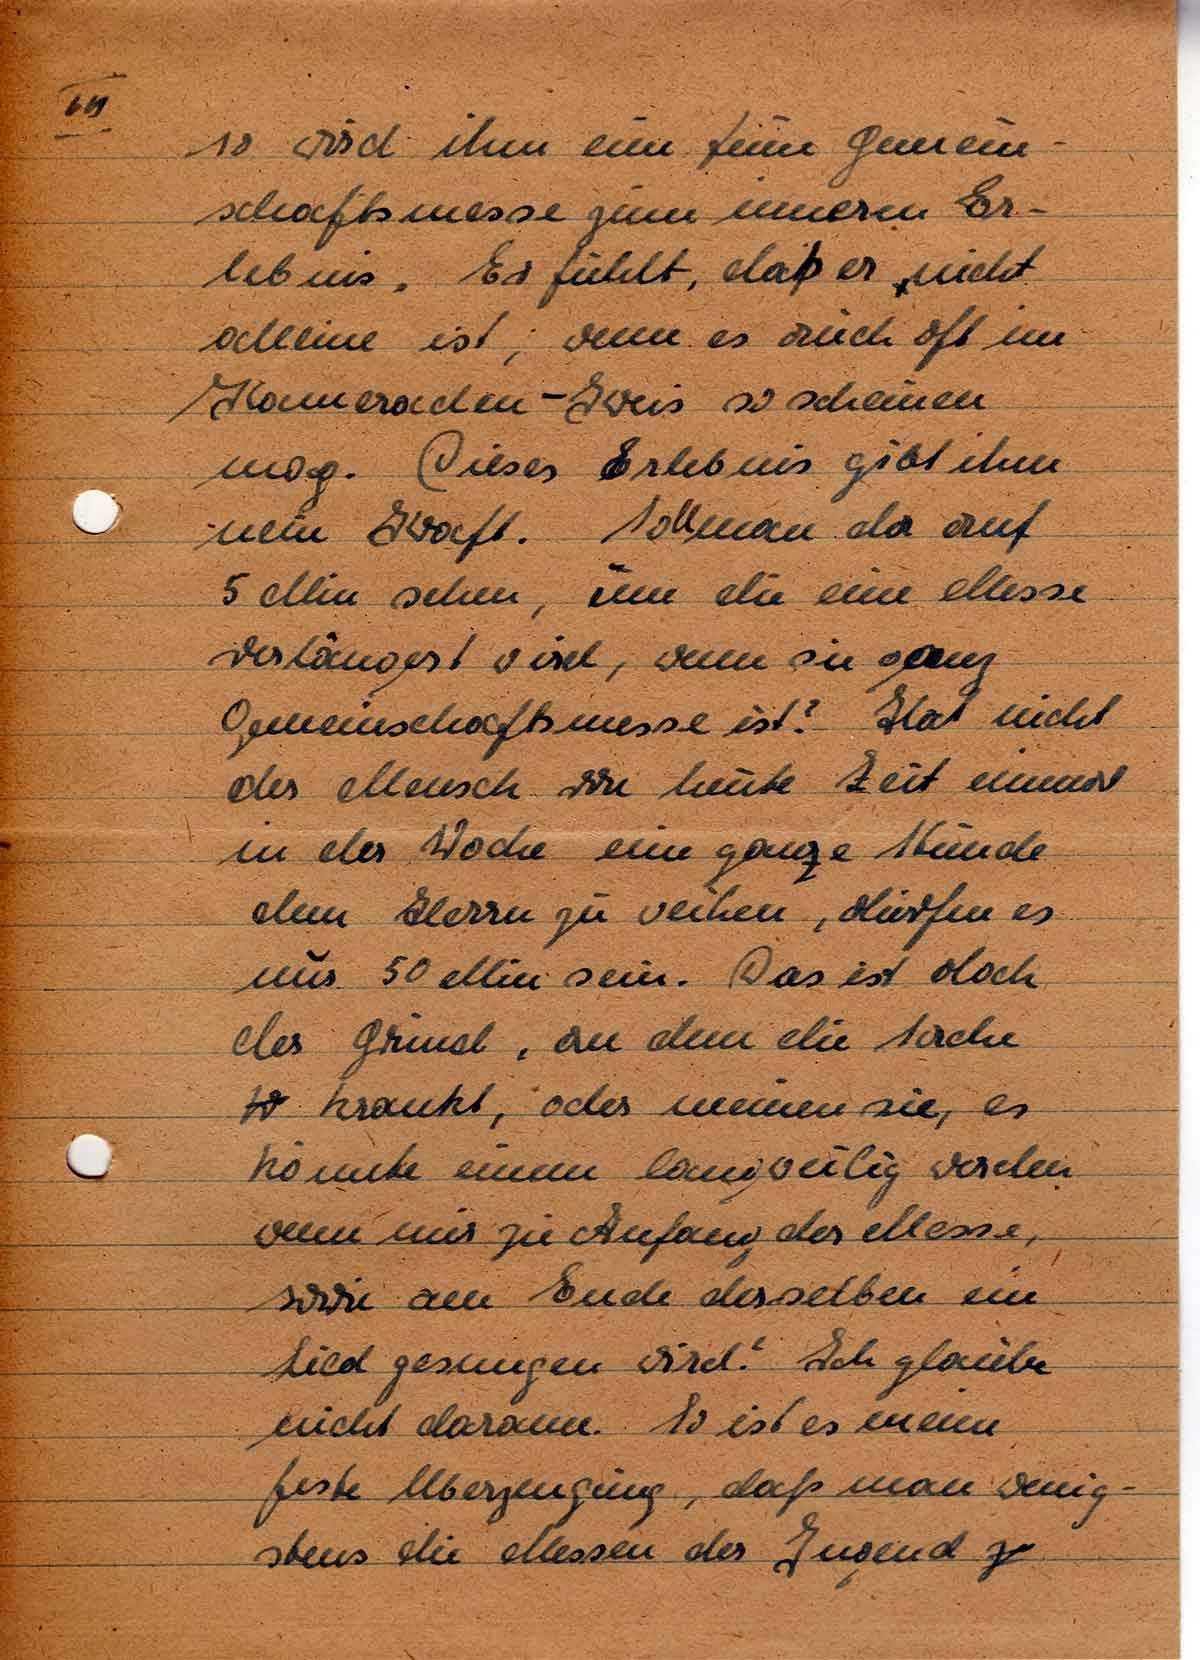 so wird ihm eine feine Gemein-
schaftsmesse zum inneren Er-
lebnis. Er fühlt, daß er nicht
alleine ist, wenn es auch oft im
Kameraden-Kreis so scheinen
mag. Dieses Erlebnis gibt ihm
neue Kraft. Soll man da auf
5 Min sehen, um die eine Messe
verlängert wird, wenn sie ganz
Gemeinschaftsmesse ist? Hat nicht
der Mensch von heute Zeit einmal
in der Woche eine ganze Stunde
dem Herrn zu weihen, dürfen es
nur 50 Min sein. Das ist doch
der Grund, an dem die Sache
krankt, oder meinen sie, es
könnte einem langweilig werden
wenn nur zu Anfang der Messe,
sowie am Ende derselben ein
Lied gesungen wird? Ich glaube
nicht daran. So ist es meine
feste Überzeugung, daß man wenig-
stens die Messen der Jugend